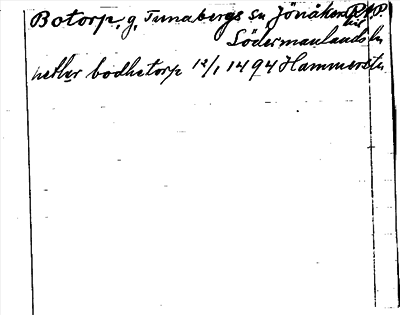 Botorp, g, Tunabergs sn Jönåkers
Södermanlands ln
bodhetorp 12/1 1494 Hammersta